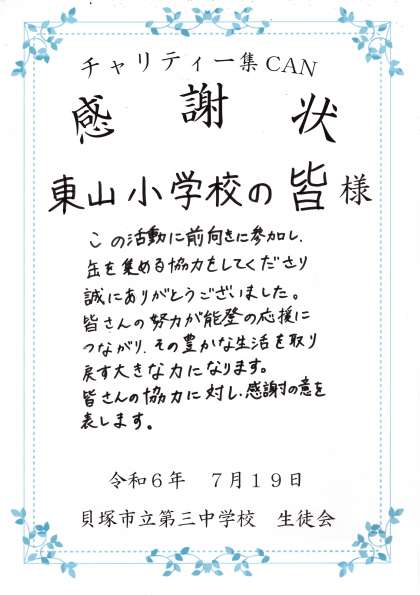 チャリティー集CAN
感謝状
東山小学校の皆様
この活動に前向きに参加し、
缶を集める協力をしてくださり
誠にありがとうございました。
皆さんの努力が能登の応援に
つながり、その豊かな生活を取り
戻す大きな力になります。
皆さんの協力に対し、感謝の意を
表します。
令和6年 7月19日
貝塚市立第三中学校 生徒会